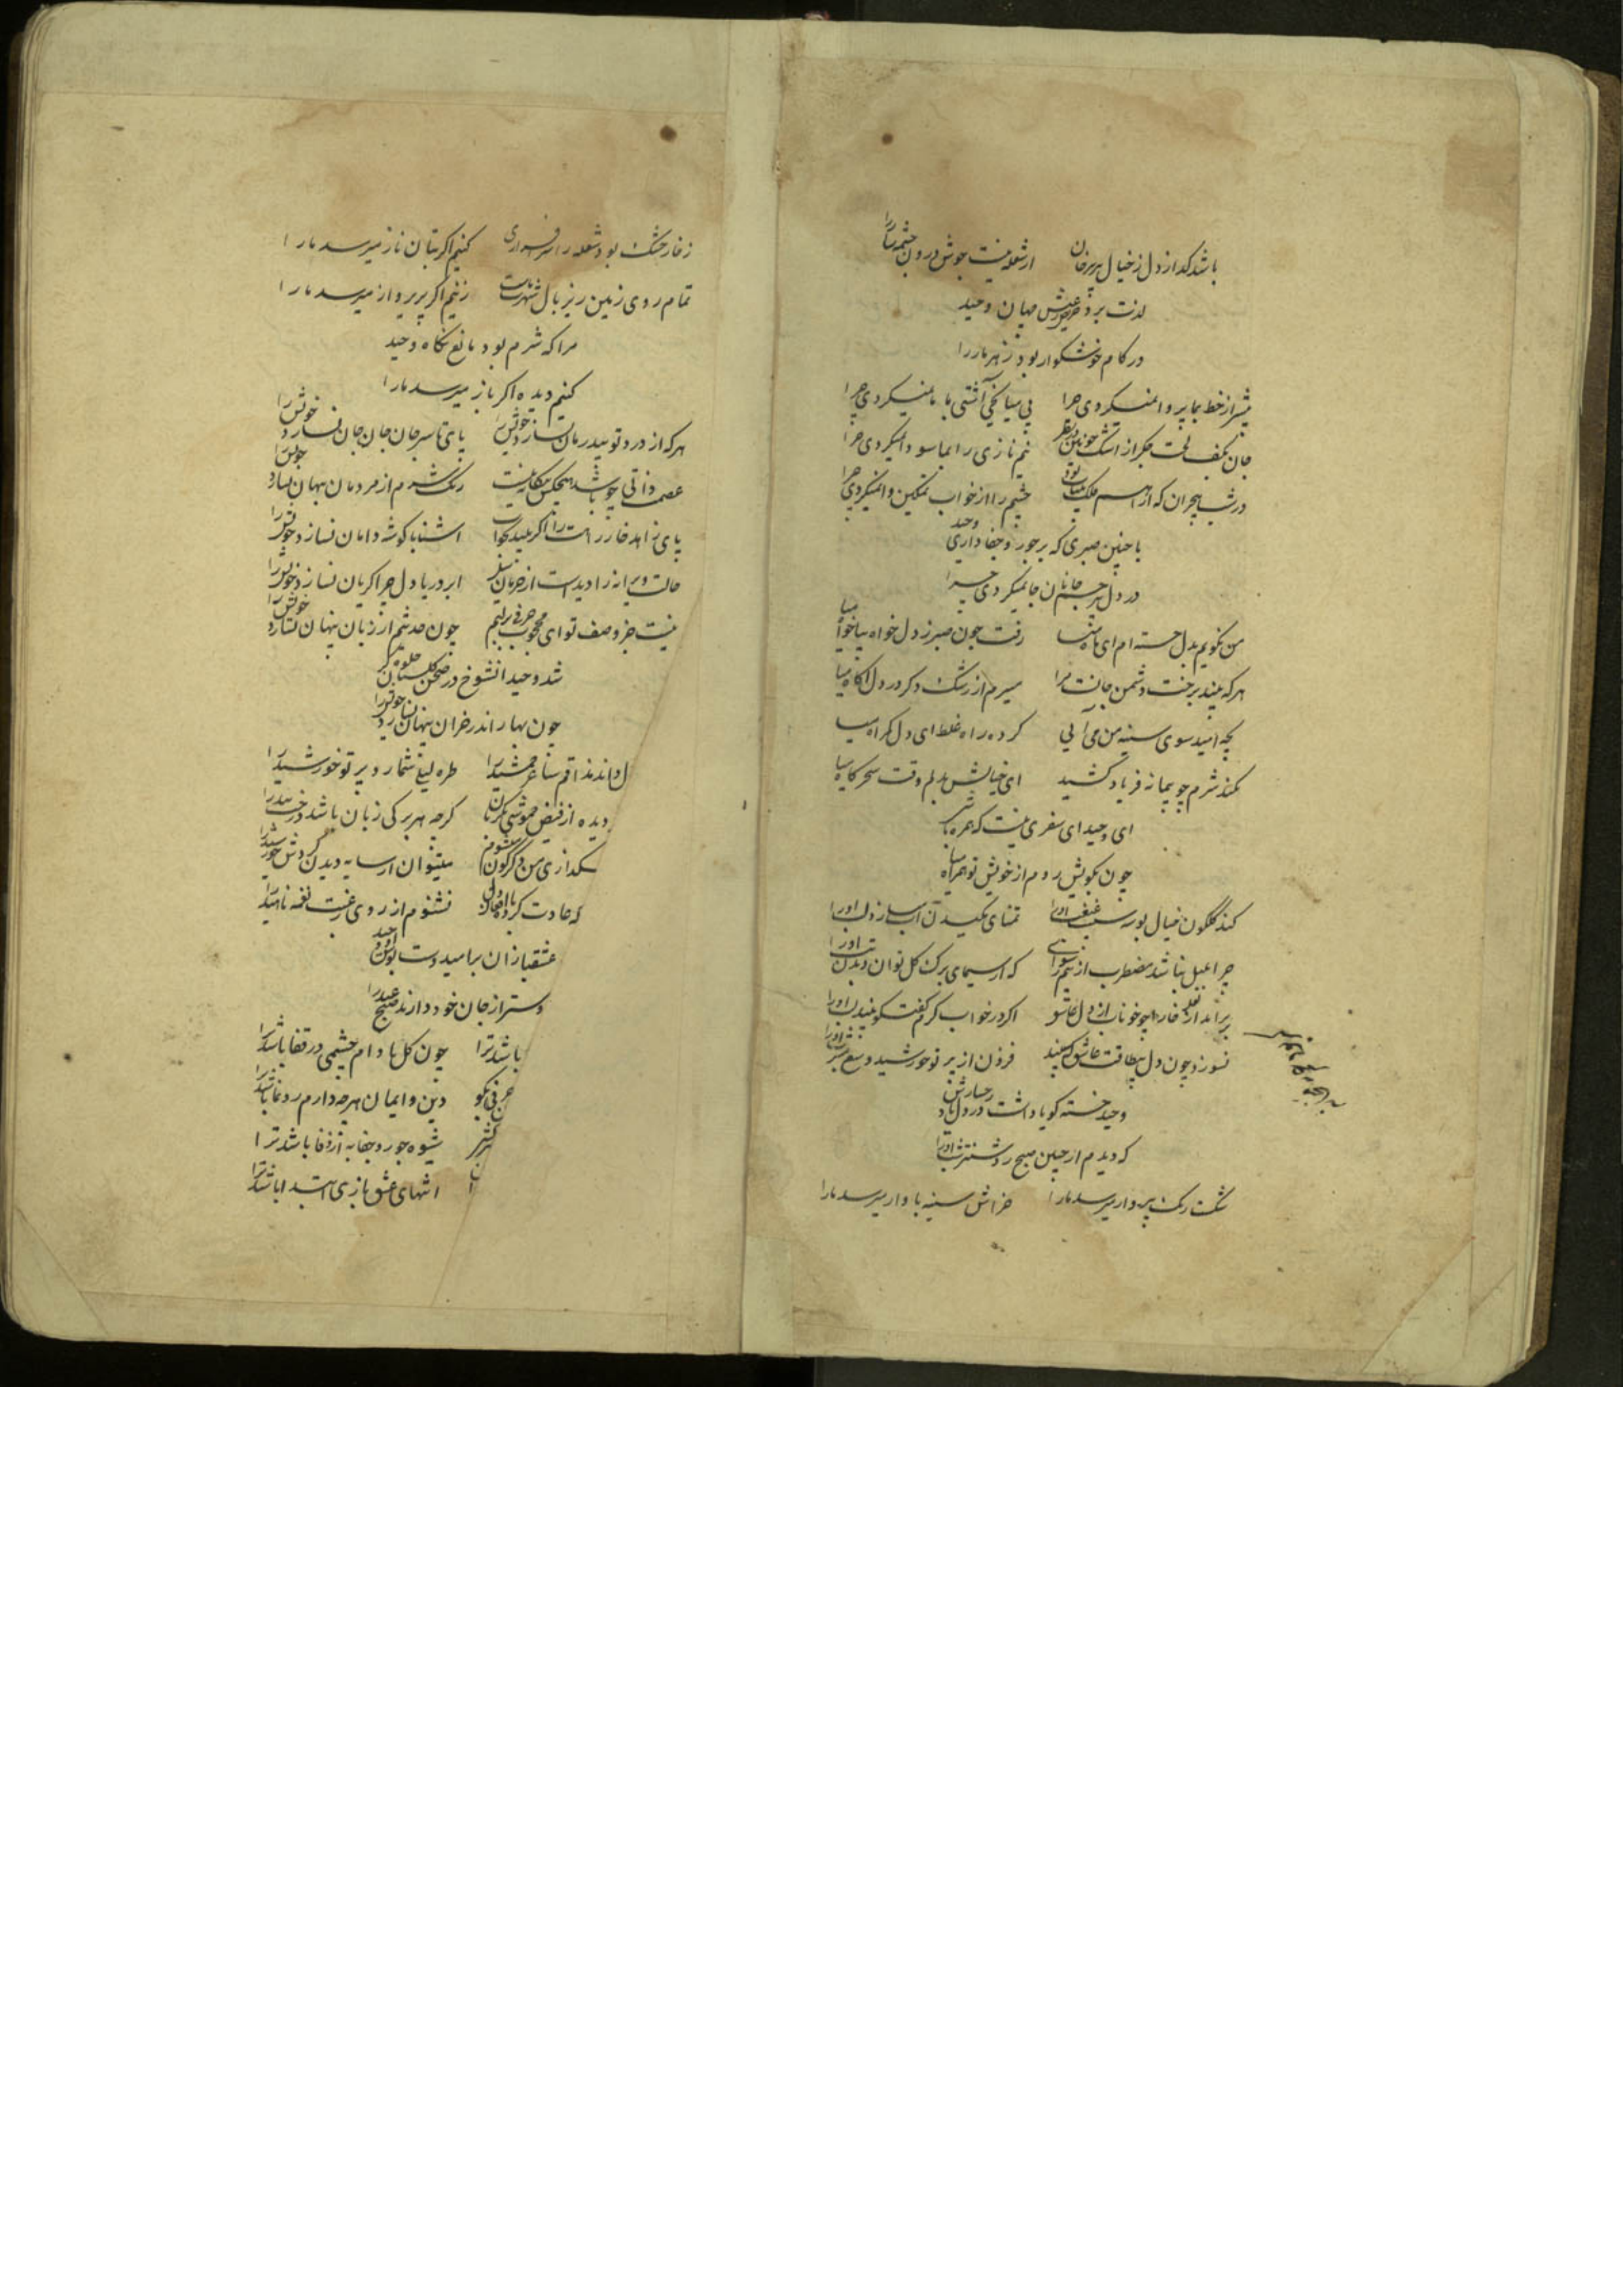 باشد کدازدل ز خیال پریرخان ازشعله نیست جوش درون چشمه‌سار را
لذت برد ز عیش جهان وحید
در کام خوشکوار بود زهر مار را
پیشتر از خط بما پروا نمیکردی چرا بی میانجی آشتی با ما نمیکردی چرا
جان بکف لخت جکر از اشک خونین در نظر نیم نازی را بما سودا نمیکردی چرا
در شب هجران که از فلک بیتاب بود چشم را از خواب تمکین وا نمیکردی چرا
با چنین صبری که بر جور و جفا داری وحید
در دل بیرحم جانان جا نمیکردی چرا
من نکویم بدل خسته ام ای ماه بیا رفت چون صبر ز دل خواه بیا خواه میا
هر که بیند برخت دشمن جانست مرا میرم از رشک و کر در دل آکاه میا
بچه امید سوی سینه من می آیی کرده راه غلط ای دل کمراه میا
نکند شرم چو پیمانه فریاد کشید ای خیالش بدلم وقت سحرکاه میا
ای وحید ای سفری نیست که همره باشی
چون بکویش روم از خویش تو همراه میا
کند کلکون خیال بوسه سیب غبغب او را تمنای مکیدن آب سازد لب او را
چرا بلبل نباشد مضطرب از بیم رسوایی که از سیمای برک کل توان دیدن تب او را
برآید از خارا چو خوناب از دل عاشق اکر در خواب کرم گفت‌گو بیند لب او را
نسوزد چون دل بیطاقت عاشق که می‌بیند فزون از پرتو خورشید
وحید خسته کویا داشت در دل یاد رخسارش
که دیدم از جبین صبح روشنتر شب او را
شکست رنک به پرواز میرسد ما را خراش سینه باواز میرسد ما را
ز خار خشک بود شعله را سرافرازی کنیم اکر بتان ناز میرسد ما را
تمام روی زمین زیر بال شهرت ماست زنیم اکر پر پرواز میرسد ما را
مرا که شرم بود مانع نکاه وحید
کنیم دیده اکر باز میرسد ما را
هر که از درد تو بیدرمان نسازد خویش را پای تا سر جان جان جان نسازد خویش را
عصمت ذاتی چو باشد هیچکس بیکانه نیست رنک شرم از مردمان پنهان نسازد خویش را
پای زاهد خار را اکر بیند بخواب آشنا با کوشه دامان نسازد خویش را
حالت ویرانه را دیدست از جریان سیل ابر دریا دل چرا کریان نسازد خویش را
نیست جز وصف تو ای محبوب حرفی بر لبم چون حدیثم از زبان پنهان نسازد خویش را
شد وحید آنشوخ در صحن کلستان جلوه‌کر
چون بهار اندر خزان پنهان نسازد خویش را
داند مذاقم ساغر جمشید را طره لیلی شمارد پرتو خورشید را
دیده از فیض خموشی کرچه هر برکی زبان باشد درخت بید را
سکدازی من دکرکون میشوم میتوان از سایه دیدن کردش خورشید را
که عادت کرده با افغان دل نشنوم از روی رغبت نغمه ناهید را
عشقبازان بر امید وصل بودن ای وحید
دوستر از جان خود دارند صبح عید را
باشد ترا چون کل بادام چشمی در قفا باشد ترا
حرفی بکو دین و ایمان هرچه دارم رونما باشد ترا
شیوه جور و جفا به از وفا باشد ترا
انتهای عشق بازی ابتدا باشد ترا